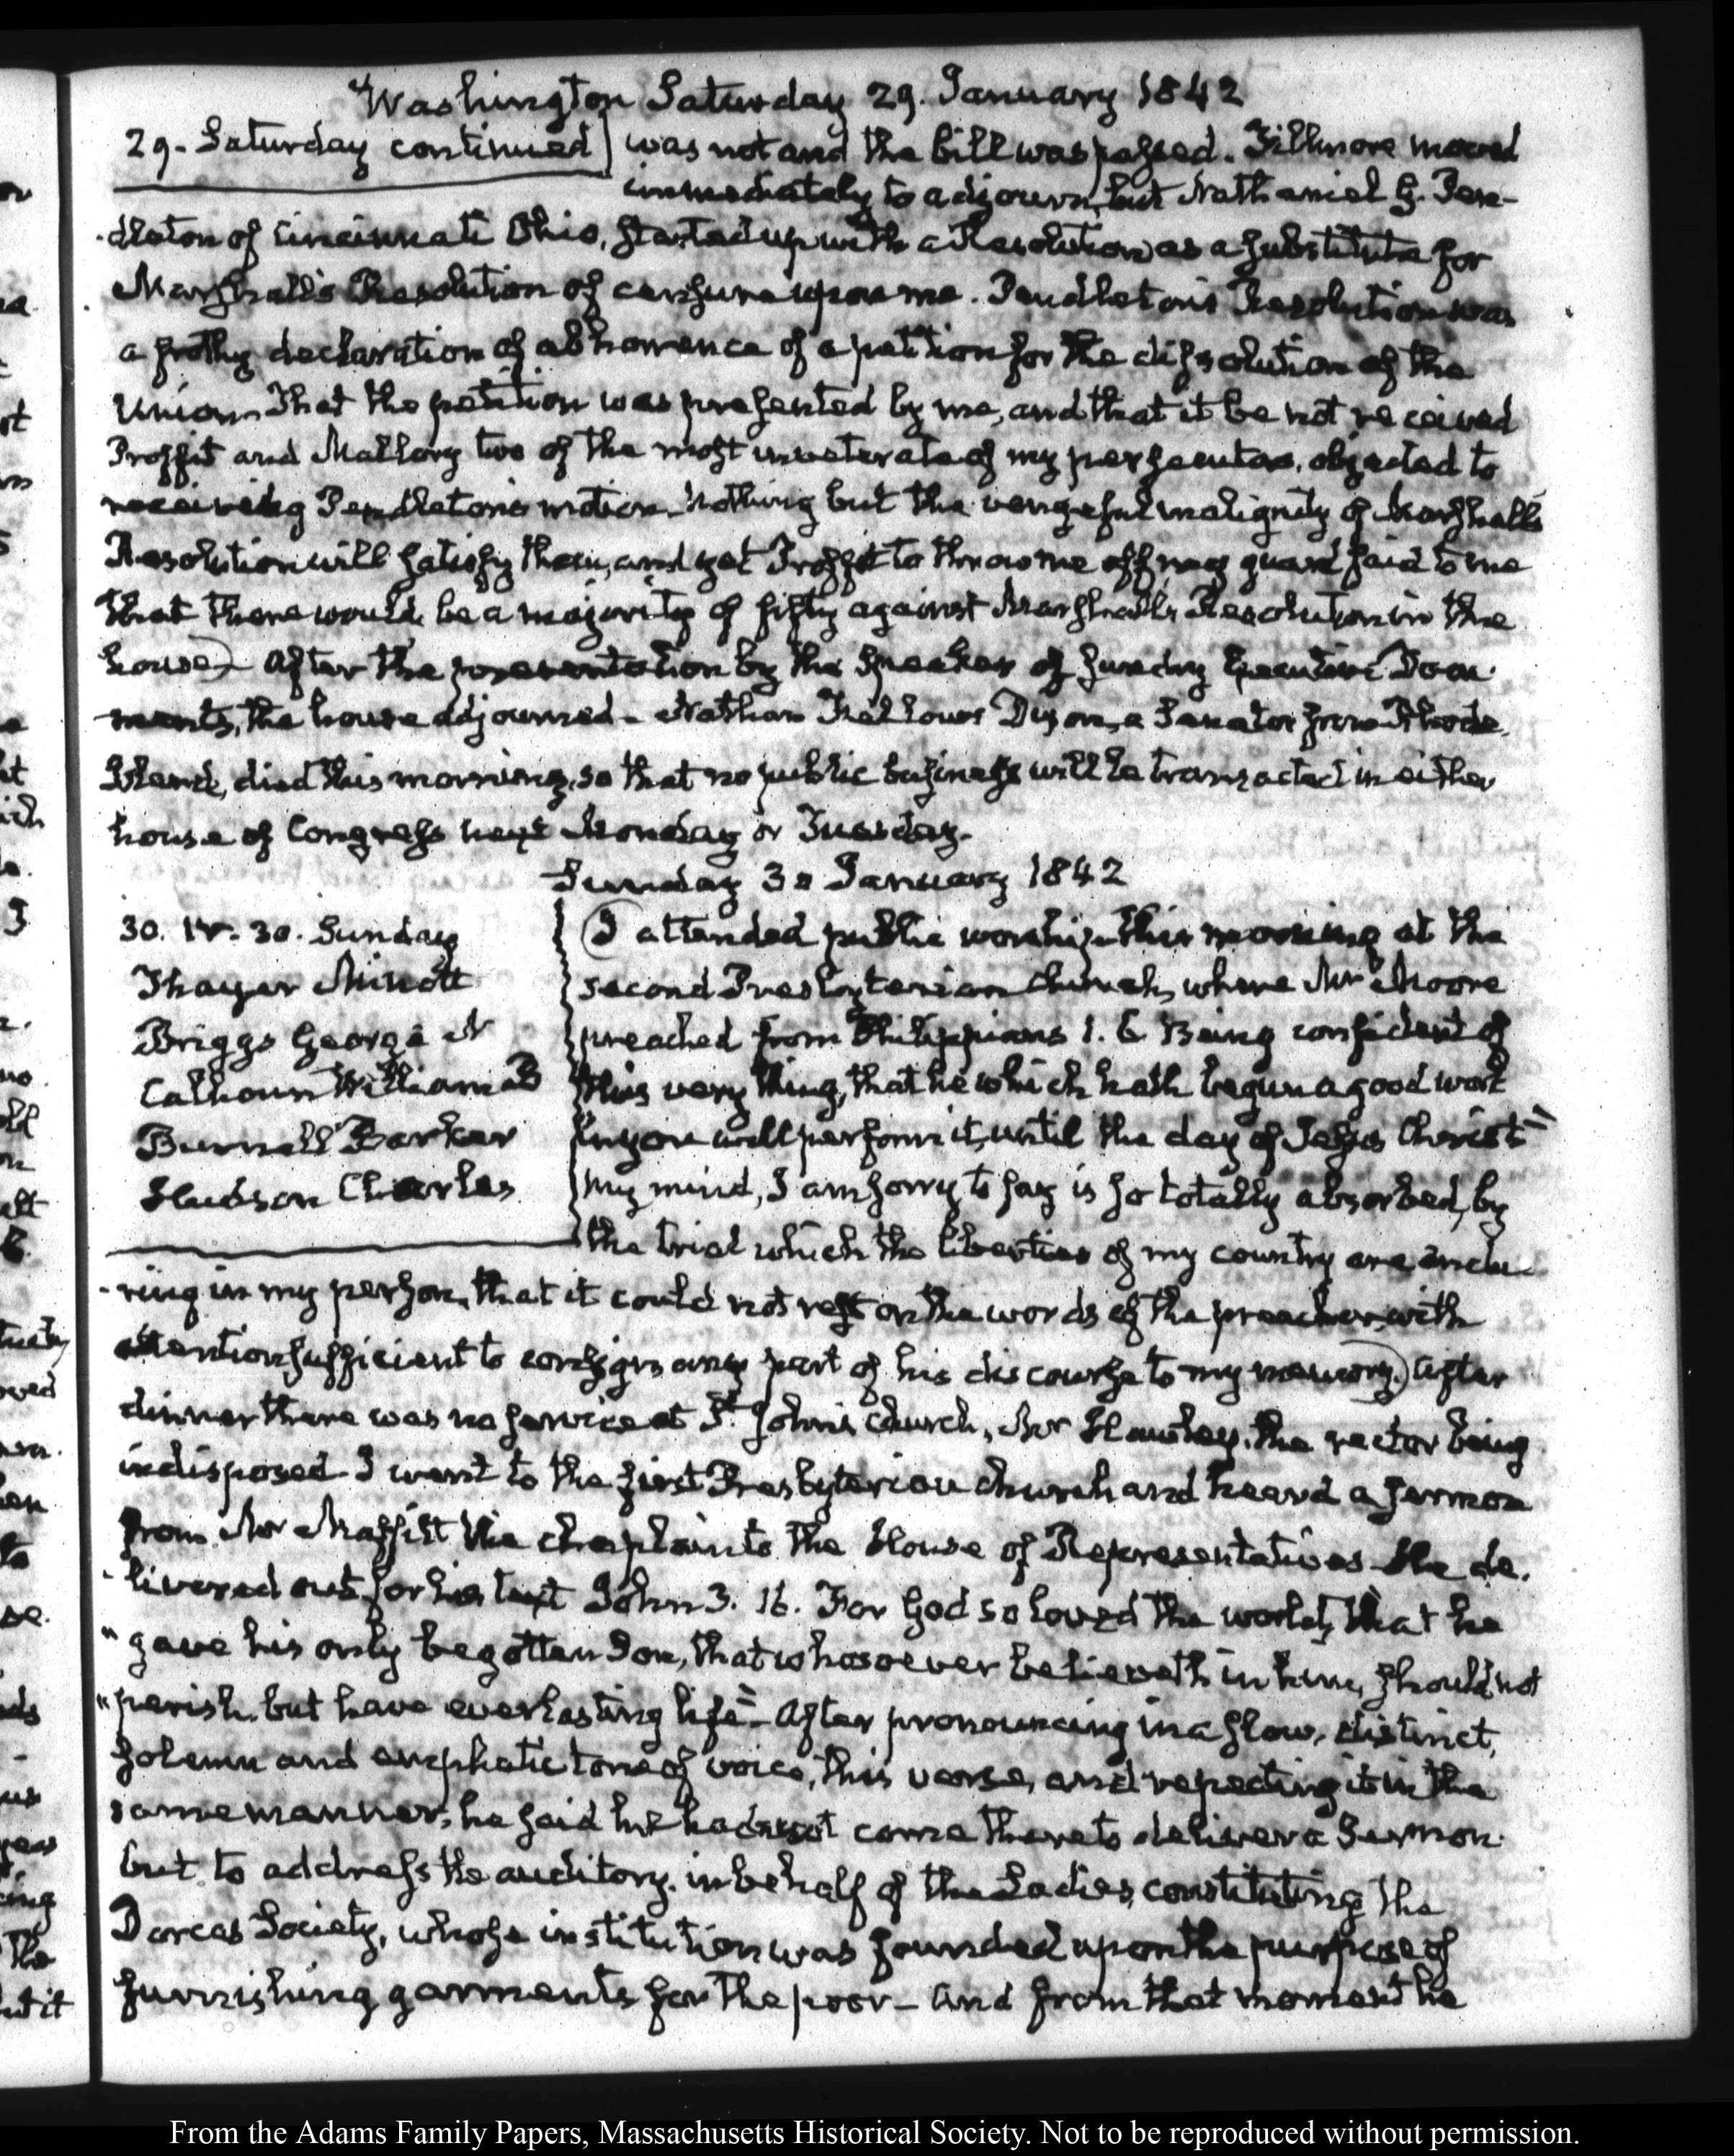 Washington Saturday 29. January 1842
29. Saturday continued] was not and the bill was passed. Fillmore moved
immediately to adjourn, but Nathaniel G. Pen-
-dleton of Cincinnati Ohio, started up with a Resolution as a substitute for
Marshall's Resolution of censure upon me. Pendleton's Resolution was
a frothy declaration of abhorrence of a petition for the dissolution of the
Union. That the petition was presented by me, and that it be not received
Proffit and Mallory two of the most inveterate of my persecutors, objected to
receiving Pendleton's motion. Nothing but the vengeful malignity of Marshall's
Resolution will satisfy them, and yet Proffit to throw me off my guard said to me
that there would be a majority of fifty against Marshall's Resolution in the
house) After the presentation by the Speaker of sundry Executive Docu-
ments, the house adjourned. Nathan Fellows Dixon, a Senator from Rhode
Island, died this morning, so that no public business will be transacted in either
house of Congress next Monday or Tuesday.
Sunday 30 January 1842
30. IV. 30. Sunday
Thayer Minott
Briggs George N
Calhoun William B
Burnell Barker
Hudson Charles
(I attended public worship this morning at the
second Presbyterian church, where Mr Moore
preached from Philippians 1. 6. Being confident of
this very thing, that he which hath begun a good work
in you will perform it, until the day of Jesus Christ"
My mind, I am sorry to say is so totally absorbed, by
the trial which the liberties of my country are endu-
-ring in my person, that it could not rest on the words of the preacher with
attention sufficient to consign any part of his discourse to my memory.) After
dinner there was no service at St. John's church, Mr Hawley, the rector being
indisposed. I went to the first Presbyterian church and heard a sermon
from Mr Maffitt the chaplain to the House of Representatives. He de-
-livered out for his text John 3. 16. For God so loved the world, that he
"gave his only begotten Son, that whosoever believeth in him, should not
"perish, but have everlasting life"- After pronouncing in a slow, distinct,
solemn and emphatic tone of voice, this verse, and repeating it in the
same manner, he said he had not come there to deliver a Sermon
but to address the auditory, in behalf of the Ladies, constituting the
Dorcas Society, whose institution was founded upon the purpose of
furnishing garments for the poor- and from that moment he
From the Adams Family Papers, Massachusetts Historical Society. Not to be reproduced without permission.